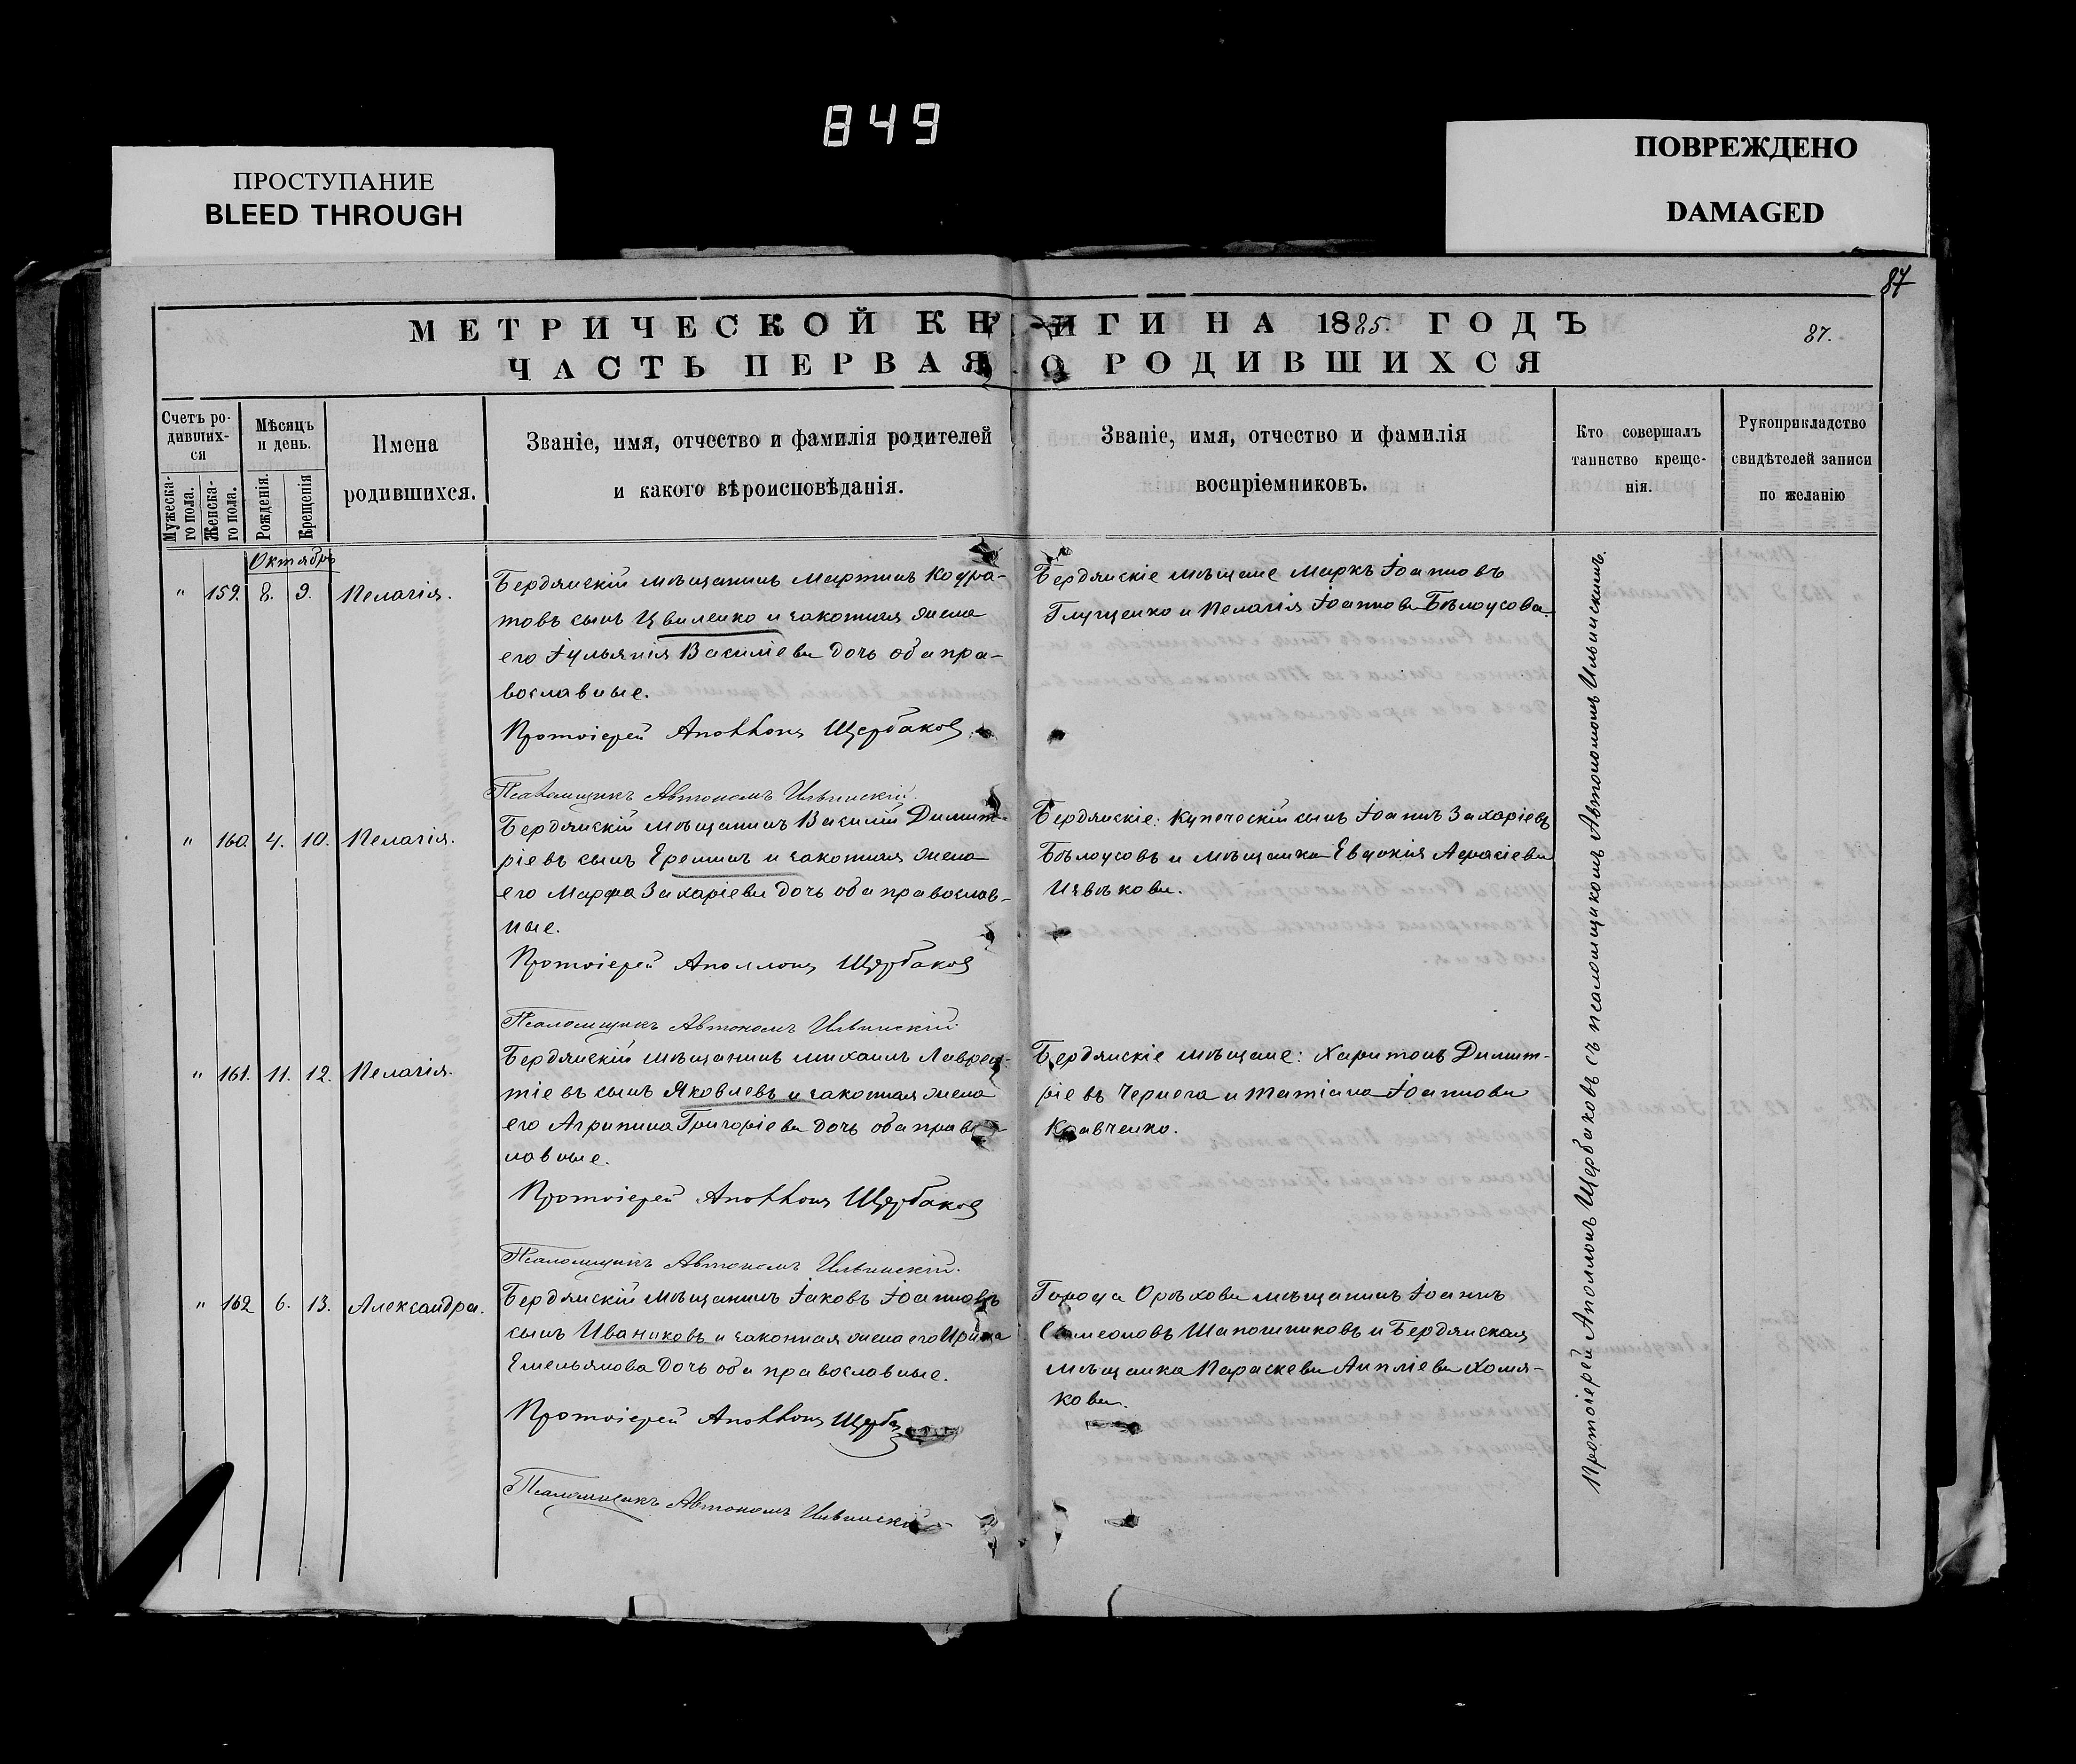 849
ПРОСТУПАНИЕ
BLEED THROUGH
ПОВРЕЖДЕНО
DAMAGED
87
МЕТРИЧЕСКОЙ КНИГИ НА 1885. ГОДЪ
87.
ЧАСТЬ ПЕРВАЯ О РОДИВШИХСЯ
Счетъ ро-
дивших-
ся
Мужеска-
го пола.
Женска-
го пола.
Мѣсяцъ
и день.
Рожденія.
Крещенія
Имена
родившихся.
Званіе, имя, отчество и фамилія родителей
и какого вѣроисповѣданія.
Званіе, имя, отчество и фамилія
воспріемниковъ.
Кто совершалъ
таинство креще-
нія.
Рукоприкладство
свидѣтелей записи
по желанію
Октябрь
" 159. 8. 9. Пелагія.
Бердянскій мѣщанинъ Мартинъ Кодра-
товъ сынъ Цвиленко и законная жена
его Іульянія Василіева дочь оба пра-
вославные.
Протоіерей Аполлонъ Щербаковъ
Псаломщикъ Автономъ Ильинскій.
Бердянскіе мѣщане Маркъ Іоанновъ
Глущенко и Пелагія Іоаннова Бѣлоусова.
" 160. 4. 10. Пелагія.
Бердянскій мѣщанинъ Василій Димит-
ріевъ сынъ Ереминъ и законная жена
его Марфа Захаріева дочь оба православ-
ные.
Протоіерей Аполлонъ Щербаковъ
Псаломщикъ Автономъ Ильинскій.
Бердянскіе: Купеческій сынъ Іоаннъ Захаріевъ
Бѣлоусовъ и мѣщанка Евдокія Афанасіева
Извѣкова.
" 161. 11. 12. Пелагія.
Бердянскій мѣщанинъ Михаилъ Лаврен-
тіевъ сынъ Яковлевъ и законная жена
его Агрипина Григоріева дочь оба правос-
лавные.
Протоіерей Аполлонъ Щербаковъ
Псаломщикъ Автономъ Ильинскій.
Бердянскіе мѣщане: Харитонъ Димит-
ріевъ Чернега и Татіана Іоаннова
Кравченко.
" 162 6. 13. Александра.
Бердянскій мѣщанинъ Іаковъ Іоанновъ
сынъ Иваниковъ и законная жена его Ирина
Емельянова дочь оба православные.
Протоіерей Аполлонъ Щерба
Псаломщикъ Автономъ Ильинскій
Города Орѣхова мѣщанинъ Іоаннъ
Симеоновъ Шапошниковъ и Бердянская
мѣщанка Параскева Анпліева Хомя-
кова.
Протоіерей Аполлонъ Щербаковъ съ псаломщикомъ Автономомъ Ильинскимъ.